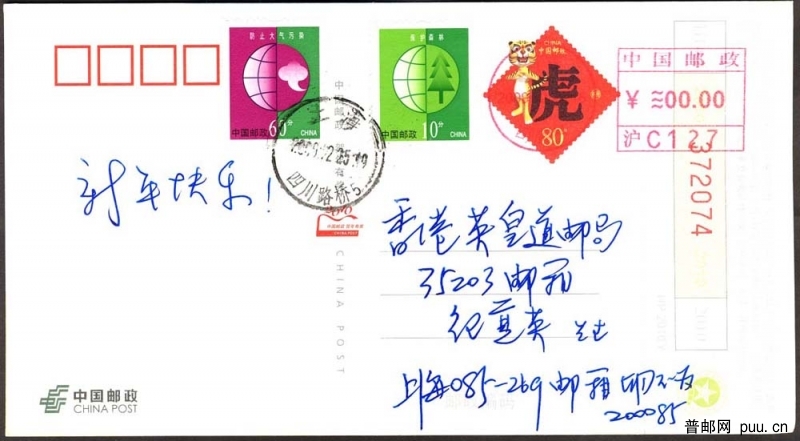 防止大气污染
60分
中国邮政
CHINA
保护森林
中国邮政
10分
CHINA
CHINA
中国邮政
虎
80分
中国邮政
¥ 00.00
沪C127
372074
上海
四川路桥5
新年快乐!
中国邮政
CHINA POST
香港英皇道邮局
35203邮箱
纪
英
上海085-269邮箱
200085
中国邮政
CHINA POST
普邮网 puu.cn